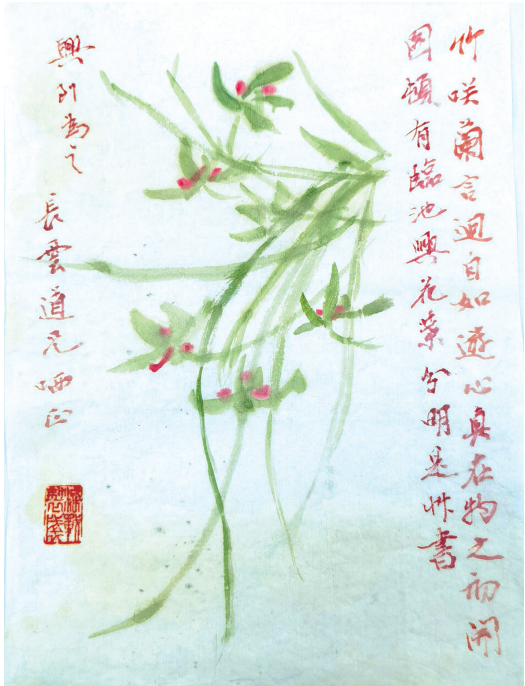 竹咲蘭言迥自如遊心真在物之初閒
囪頓有臨池興花葉分明是艸書
興到為之
長雲道兄哂正